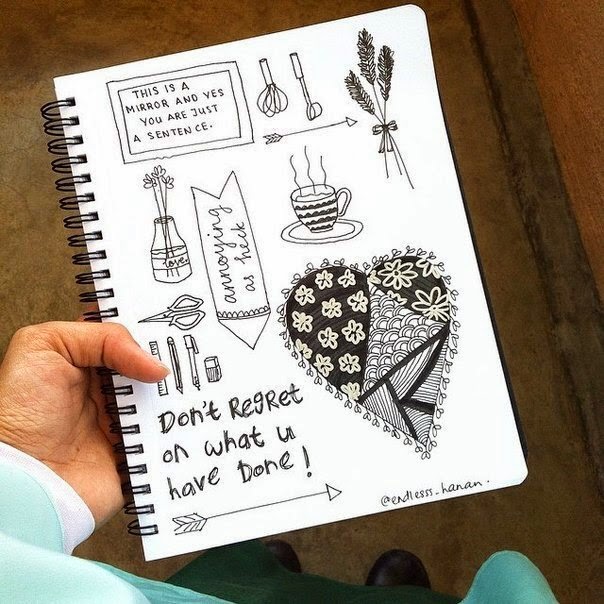 THIS IS A
MIRROR AND YES
YOU ARE JUST
A SENTENCE.
love.
annoying
as heck
Don't RegRet
on what u
have Done!
@endlesss_hanan.